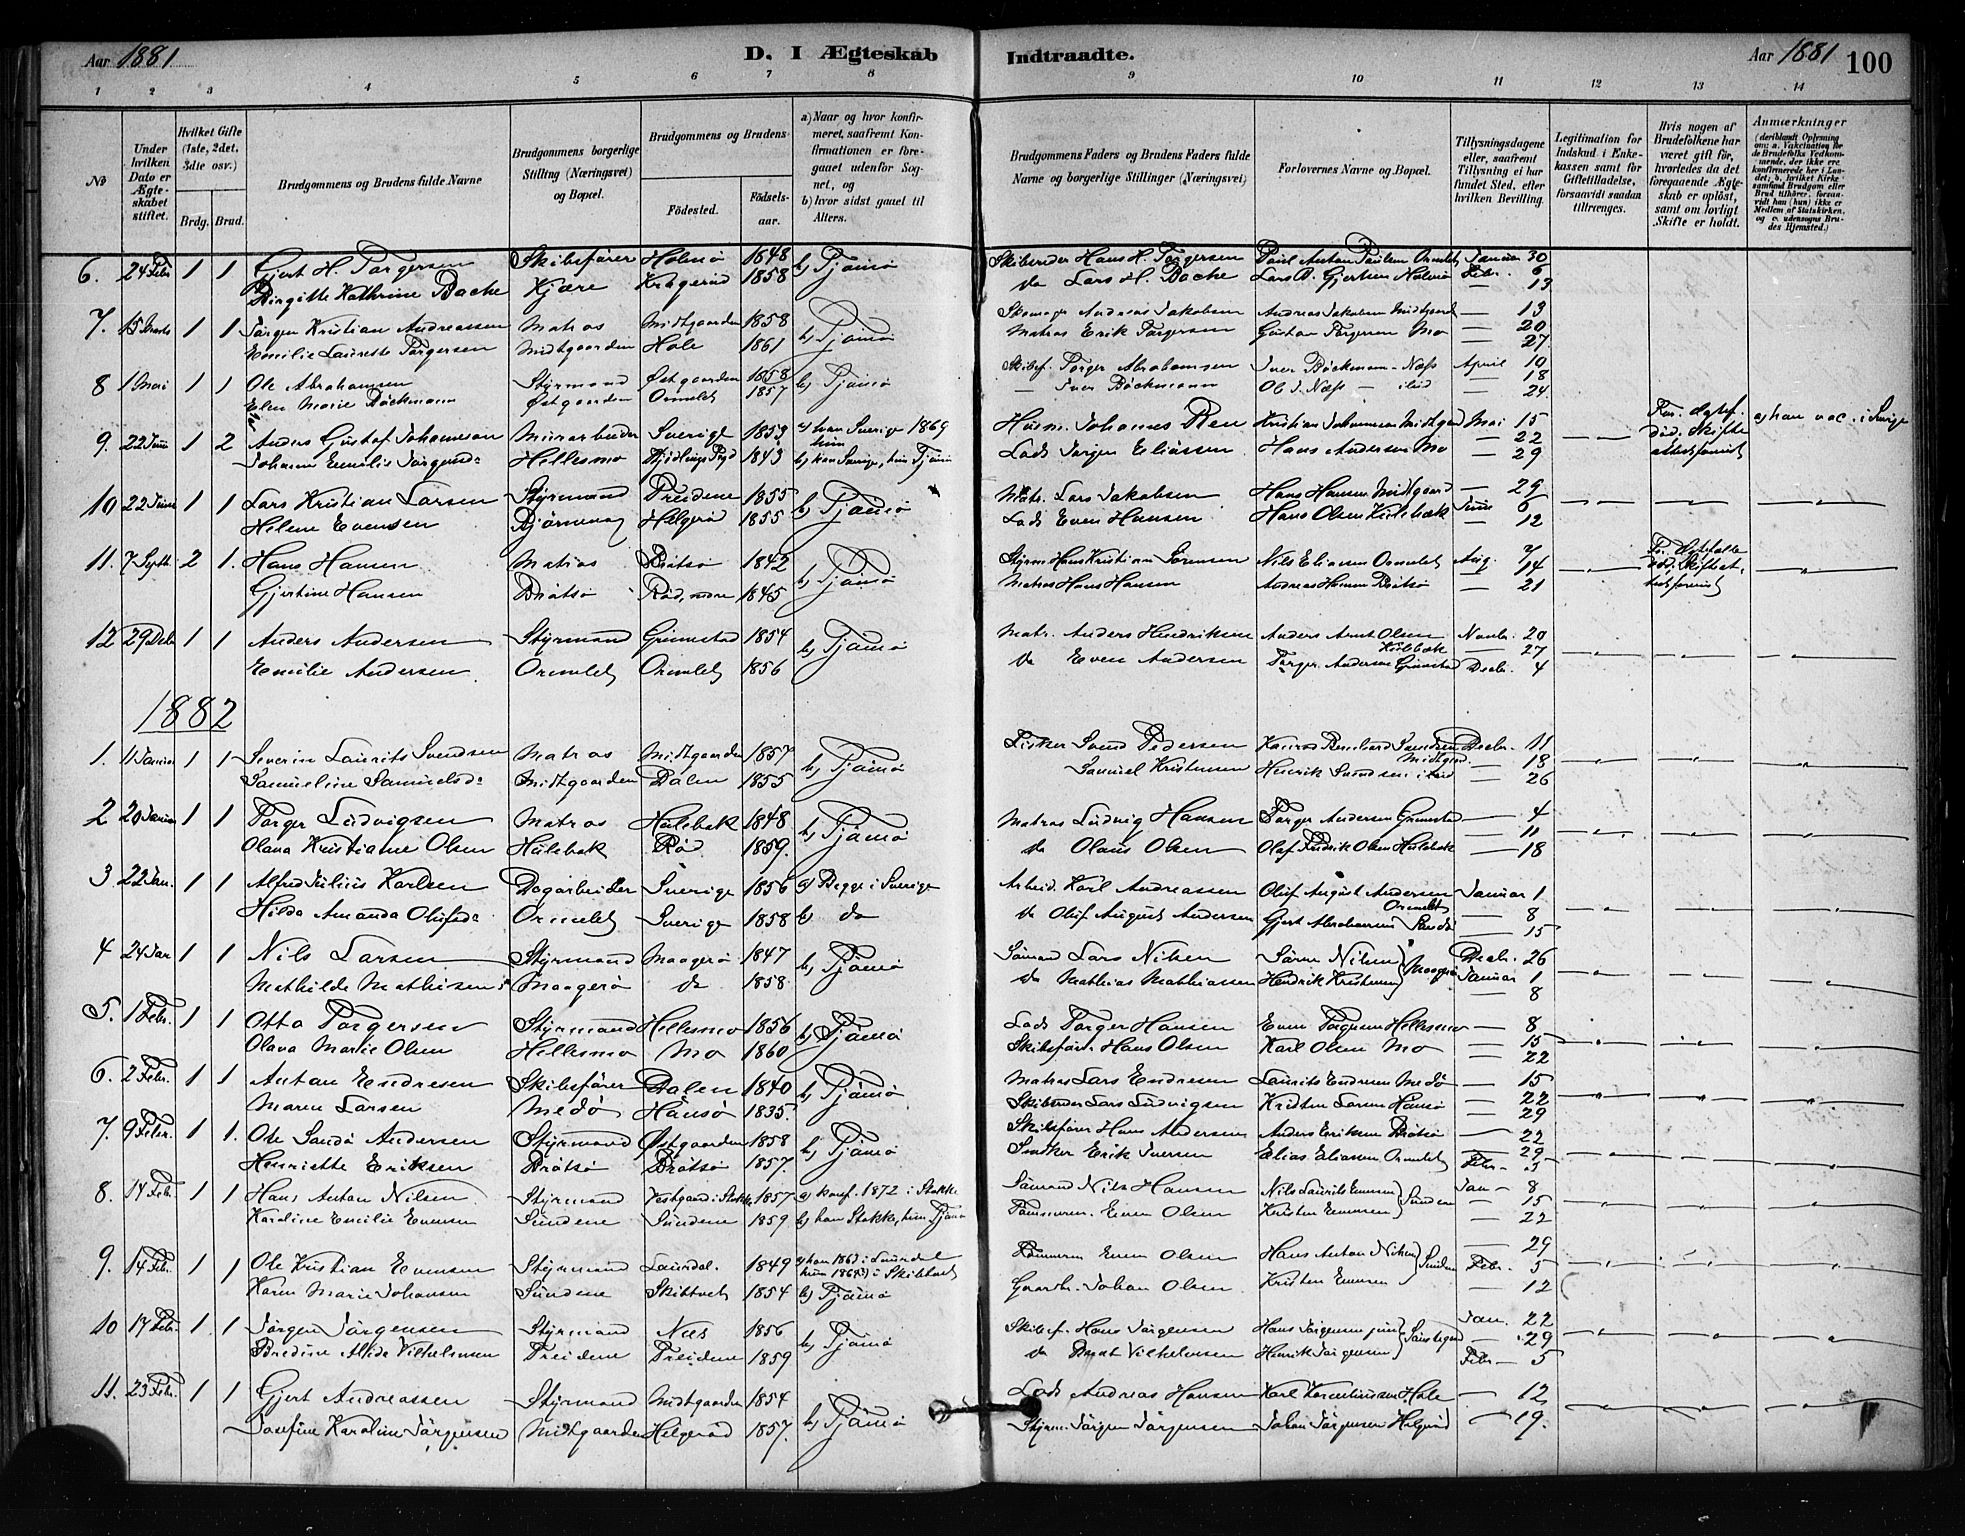 Aar 1881
D. I Ægteskab Indtraadte.
Aar 1881 100
1 2 3 4 5 6 7 8 9 10 11 12 13 14
No
Under hvilken Dato er Ægteskabet stiftet.
Hvilket Gifte (1ste, 2det, 3die osv.)
Brdg. Brud.
Brudgommens og Brudens fulde Navne
Brudgommens borgerlige Stilling (Næringsvei) og Bopæl.
Brudgommens og Brudens
Födested.
Födselsaar.
a) Naar og hvor konfirmeret, saafremt Konfirmationen er foregaaet udenfor Sognet, og
b) hvor sidst gaaet til Alters.
Brudgommens Faders og Brudens Faders fulde Navne og borgerlige Stillinger (Næringsvei)
Forlovernes Navne og Bopæl.
Tillysningsdagene eller, saafremt Tillysning ei har fundet Sted, efter hvilken Bevilling.
Legitimation for Indskud i Enkekassen samt for Giftetilladelse, forsaavidt saadan tiltrænges.
Hvis nogen af Brudefolkene har været gift för, hvorledes da det foregaaende Ægteskab er oplöst, samt om lovligt Skifte er holdt.
Anmærkninger
(deriblandt Oplysning om: a. Vakcination for de Brudefolks Vedkommende, der ikke ere konfirmerede her i Landet; b. hvilket Kirkesamfund Brudgom eller Brud tilhörer, forsaavidt han (hun) ikke er Medlem af Statskirken, og c. udensogns Brudes Hjemsted.)
6. 24 Febr 1 1 Gjert H. Torgersen Skibsfører Holmø 1848 b) Tjømø Skibsreder Hans H. Torgersen Paul Anton Paulsen Ormelet Januar 30
Birgitte Kathrine Bache Kjære Kragerød 1858 do Lars H. Bache Lars B. Gjertsen Holmø Febr. 6
— 13
7. 15 Marts 1 1 Jørgen Kristian Andreassen Matros Midtgaarden 1858 b) Tjømø Skomager Andreas Jakobsen Andreas Jakobsen Midtgaard — 13
Emilie Laurette Torgersen Midtgaarden Hole 1861 Matros Erik Torgersen Gustav Torgersen Mo — 20
— 27
8 1 Mai 1 1 Ole Abrahamsen Styrmand Østgaarden 1858 b) Tjømø Skibsf. Torger Abrahamsen Iver Böckmann Næss April 10
Elen Marie Böckmann Østgaarden Ormelet 1857 — Iver Böckmann Ol. J. Næss — ibid — 18
— 24
9. 22 Juni 1 2 Anders Gustaf Johannesen Murarbeider Sverige 1853 a) han Sverige 1869 Husm. Johannes Ren Kristian Johannesen Midtgaard Mai 15 For. Ægtef. død. Skifte a) han vac. i Sverige
Johanne Emilie Jørgensd: Hellesmo 1843 b) han Sverige, hun Tjømø Lods Jørgen Eliassen Hans Andersen Mo — 22
— 29
10 22 Juni 1 1 Lars Kristian Larsen Styrmand Treidene 1855 b) Tjømø Matr. Lars Jakobsen Hans Hansen Midtgaard — 29
Helene Evensen Bjørnevaag Helgerød 1855 Lods Even Hansen Hans Olsen Hulebæk Juni 6
— 12
11. 7 Septb. 2 1. Hans Hansen Matros Brøtsø 1842 b) Tjømø Styrm Hans Kristian Sørensen Nils Eliassen Ormelet Aug. 7
Gjertine Hansen Brøtsø Rød, 1845 Matros Hans Hansen Andreas Hansen Brøtsø — 14
— 21
12 29 Decb 1 1 Anders Andersen Styrmand Grimestad 1854 b) Tjømø Matr. Anders Hendriksen Anders Arnt Olsen Hulebæk Novbr. 20
Emilie Andersen Ormelet Ormelet 1856 do Even Andersen Torger Andersen Grimestad — 27
Decbr. 4
1882
1. 11 Januar 1 1 Severin Laurits Svendsen Matros Midtgaarden 1857 b) Tjømø Fisker Svend Pedersen Konrad Bernhard Svendsen Midtgaard. Decbr. 11
Samueline Samuelsd: Midtgaarden Dalen 1855 Samuel Kristensen Henrik Svendsen ibid — 18
— 26
2 20 Januar 1 1 Torger Ludvigsen Matros Hulebak 1848 b) Tjømø Matros Ludvig Hansen Torger Andersen Grimestad — 4
Olava Kristiane Olsen Hulebak Rød 1859. do Olaus Olsen Olaf Fredrik Olsen Hulebak — 11
— 18
3 22 Jan. 1 1 Alfred Julius Karlsen Dagarbeider Sverige 1856 a) Begge i Sverige Arbeid. Karl Andreassen Oluf August Andersen Ormelet Januar 1
Hilda Amanda Olufsd: Ormelet Sverige 1858 b) do do Oluf August Andersen Gjert Abrahamsen Sandø — 8
— 15
4 24 Jan 1 1 Nils Larsen Styrmand Maagerø 1847 b) Tjømø Sømand Lars Nilsen Søren Nilsen Maagerø Decbr. 26
Mathilde Mathisen Maagerø do 1858 do Mathias Mathiassen Hendrik Kristensen Januar 1
— 8
5. 1 Febr. 1 1 Otto Torgersen Styrmand Hellesmo 1856 b) Tjømø Lods Torger Hansen Even Torgersen Hellesmo — 8
Olava Marie Olsen Hellesmo Mo 1860 Skibsfør. Hans Olsen Karl Olsen Mo — 15
— 22
6. 2 Febr. 1 1 Anton Endresen Skibsfører Dalen 1840 b) Tjømø Matros Lars Endresen Laurits Endresen Medø — 15
Maren Larsen Medø Hansø 1835. Skibsreder Lars Ludvigsen Kristen Larsen Hansø — 22
— 29
7. 9 Febr. 1 1. Ole Sandø Andersen Styrmand Østgaarden 1858 b) Tjømø Skibsfører Hans Andersen Anders Eriksen Brøtsø — 22
Henriette Eriksen Brøtsø Brøtsø 1857. Snedker Erik Iversen Elias Eliassen Ormelet — 29
Febr — 5
8. 14 Feb. 1 1 Hans Anton Nilsen Styrmand Vestgaard i Stokke 1857 a) konf. 1872 i Stokke Sømand Nils Hansen Nils Laurits Evensen Sundene Jan — 8
Karoline Emilie Evensen Sundene Sundene 1859 b) han Stokke, hun Tjømø Tømmerm. Even Olsen Kristen Evensen — 15
— 22
9. 14 Feb. 1 1 Ole Kristian Evensen Styrmand Laurdal. 1849 a) han 186 i Laurdal hun 186 i Skibtvet Tømmerm Even Olsen Hans Anton Nilsen Sundene — 29
Karen Marie Johansen Sundene Skibtvet 1854 b) Tjømø Gaardbr. Johan Olsen Kristen Evensen Febr. — 5
— 12
10 17 Febr. 1 1 Jørgen Jørgensen Styrmand Næs 1856 b) Tjømø Skibsf. Hans Jørgensen Hans Jørgensen jun. Jan. 22
Bredine Alida Vilhelmsen Treidene Treidene 1859 do Vilhelmsen Henrik Jørgensen — 29
Febr — 5
11. 23 Febr. 1 1 Gjert Andreassen Styrmand Midtgaarden 1854 b) Tjømø Lods Andreas Hansen Karl Hole — 12
Josefine Karoline Jørgensen Midtgaarden Helgerød 1857. Styrm. Jørgen Jørgensen Johan Jørgensen Helgerød — 19.